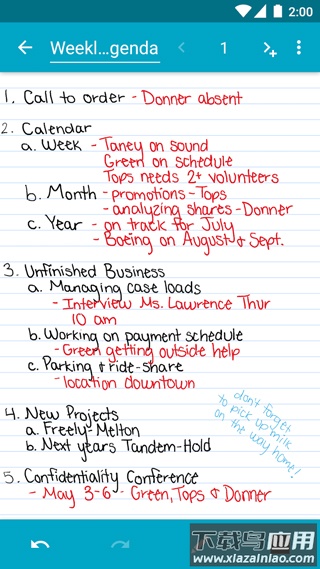 2:00
Weekl...genda
1
1. Call to order - Donner absent
2. Calendar
a. Week - Taney on sound
Green on schedule
Tops needs 2+ volunteers
b. Month - promotions - Tops
- analyzing shares - Donner
c. Year - on track for July
- Boeing on August & Sept.
3. Unfinished Business
a. Managing case loads
- Interview Ms. Lawrence Thur
10 am
b. Working on payment schedule
- Green getting outside help
c. Parking & ride-share
- location downtown
don't forget
to pick up milk
on the way home!
4. New Projects
a. Freely-Melton
b. Next years Tandem-Hold
5. Confidentiality Conference
- May 3-6 - Green, Tops & Donner
下载鸟应用
www.xiazainiao.com